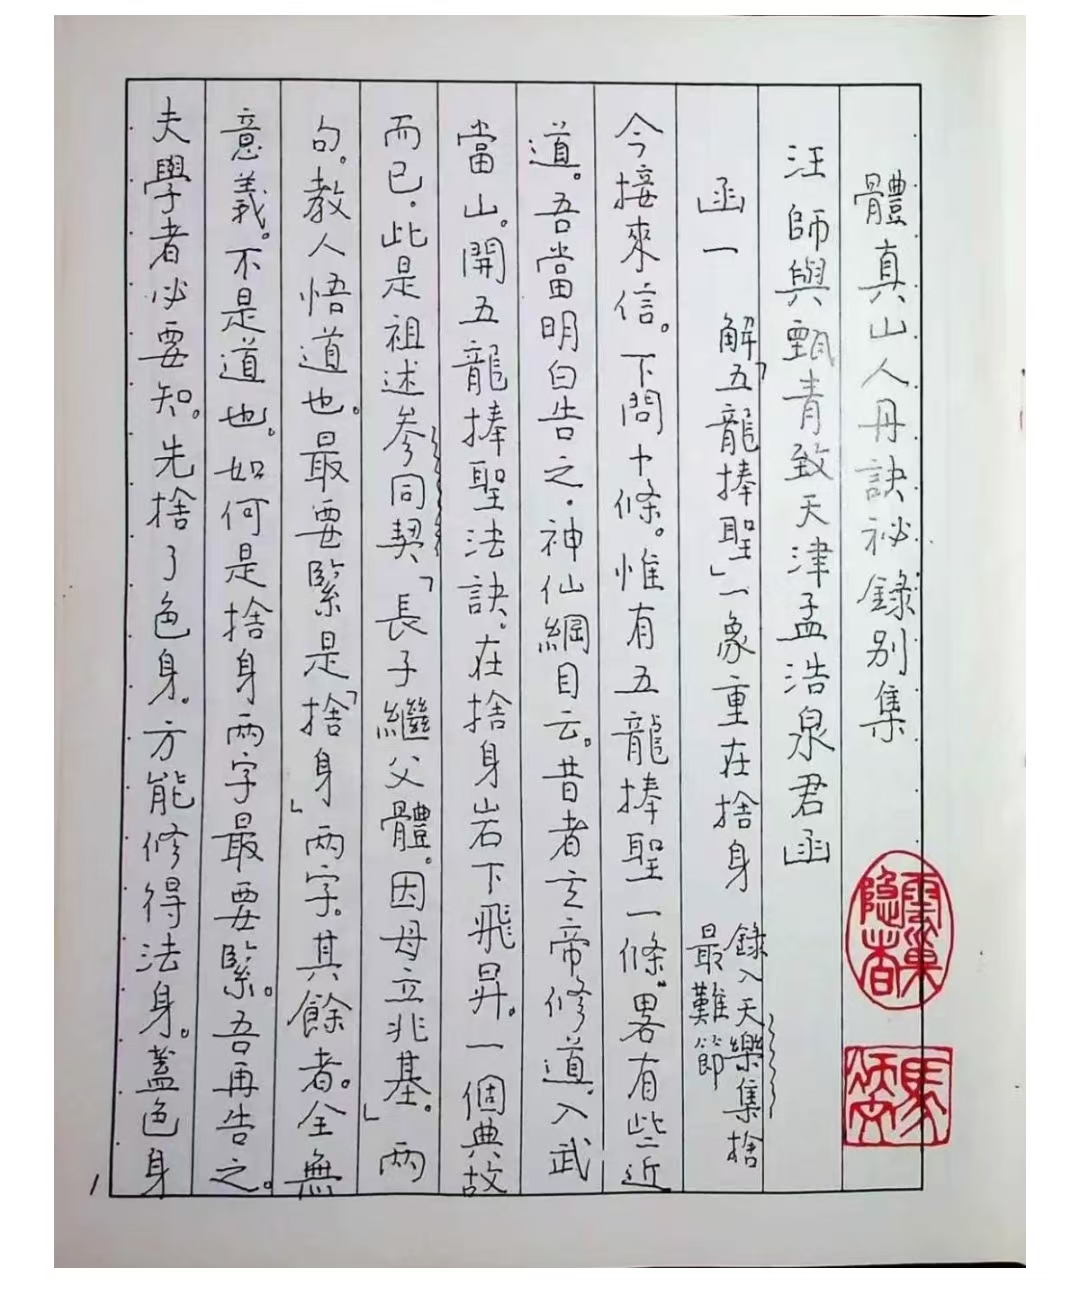 體真山人丹訣祕錄别集
汪師與甄青致天津孟浩泉君函
函一 解「五龍捧聖」一象重在捨身 錄入天樂集捨
最難節
今接來信。下問十條。惟有五龍捧聖一條。畧有些近
道。吾當明白告之。神仙綱目云。昔者玄帝修道。入武
當山。開五龍捧聖法訣。在捨身岩下飛昇。一個典故
而已。此是祖述參同契「長子繼父體。因母立兆基。」兩
句。教人悟道也。最要緊是「捨身」兩字。其餘者。全無
意義。不是道也。如何是捨身兩字最要緊。吾再告之。
夫學者必要知。先捨了色身。方能修得法身。蓋色身
雲巢隱者
馬
1